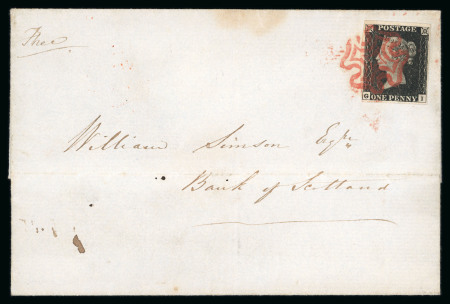 Free
POSTAGE
G ONE PENNY I
William Simson Esqr
Bank of Scotland